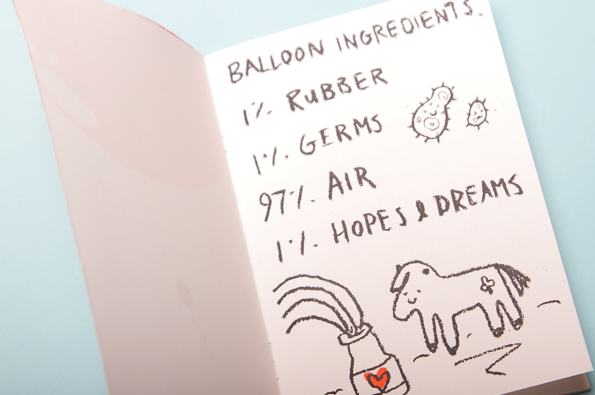 BALLOON INGREDIENTS.
1%. RUBBER
1%. GERMS
97%. AIR
1%. HOPES & DREAMS